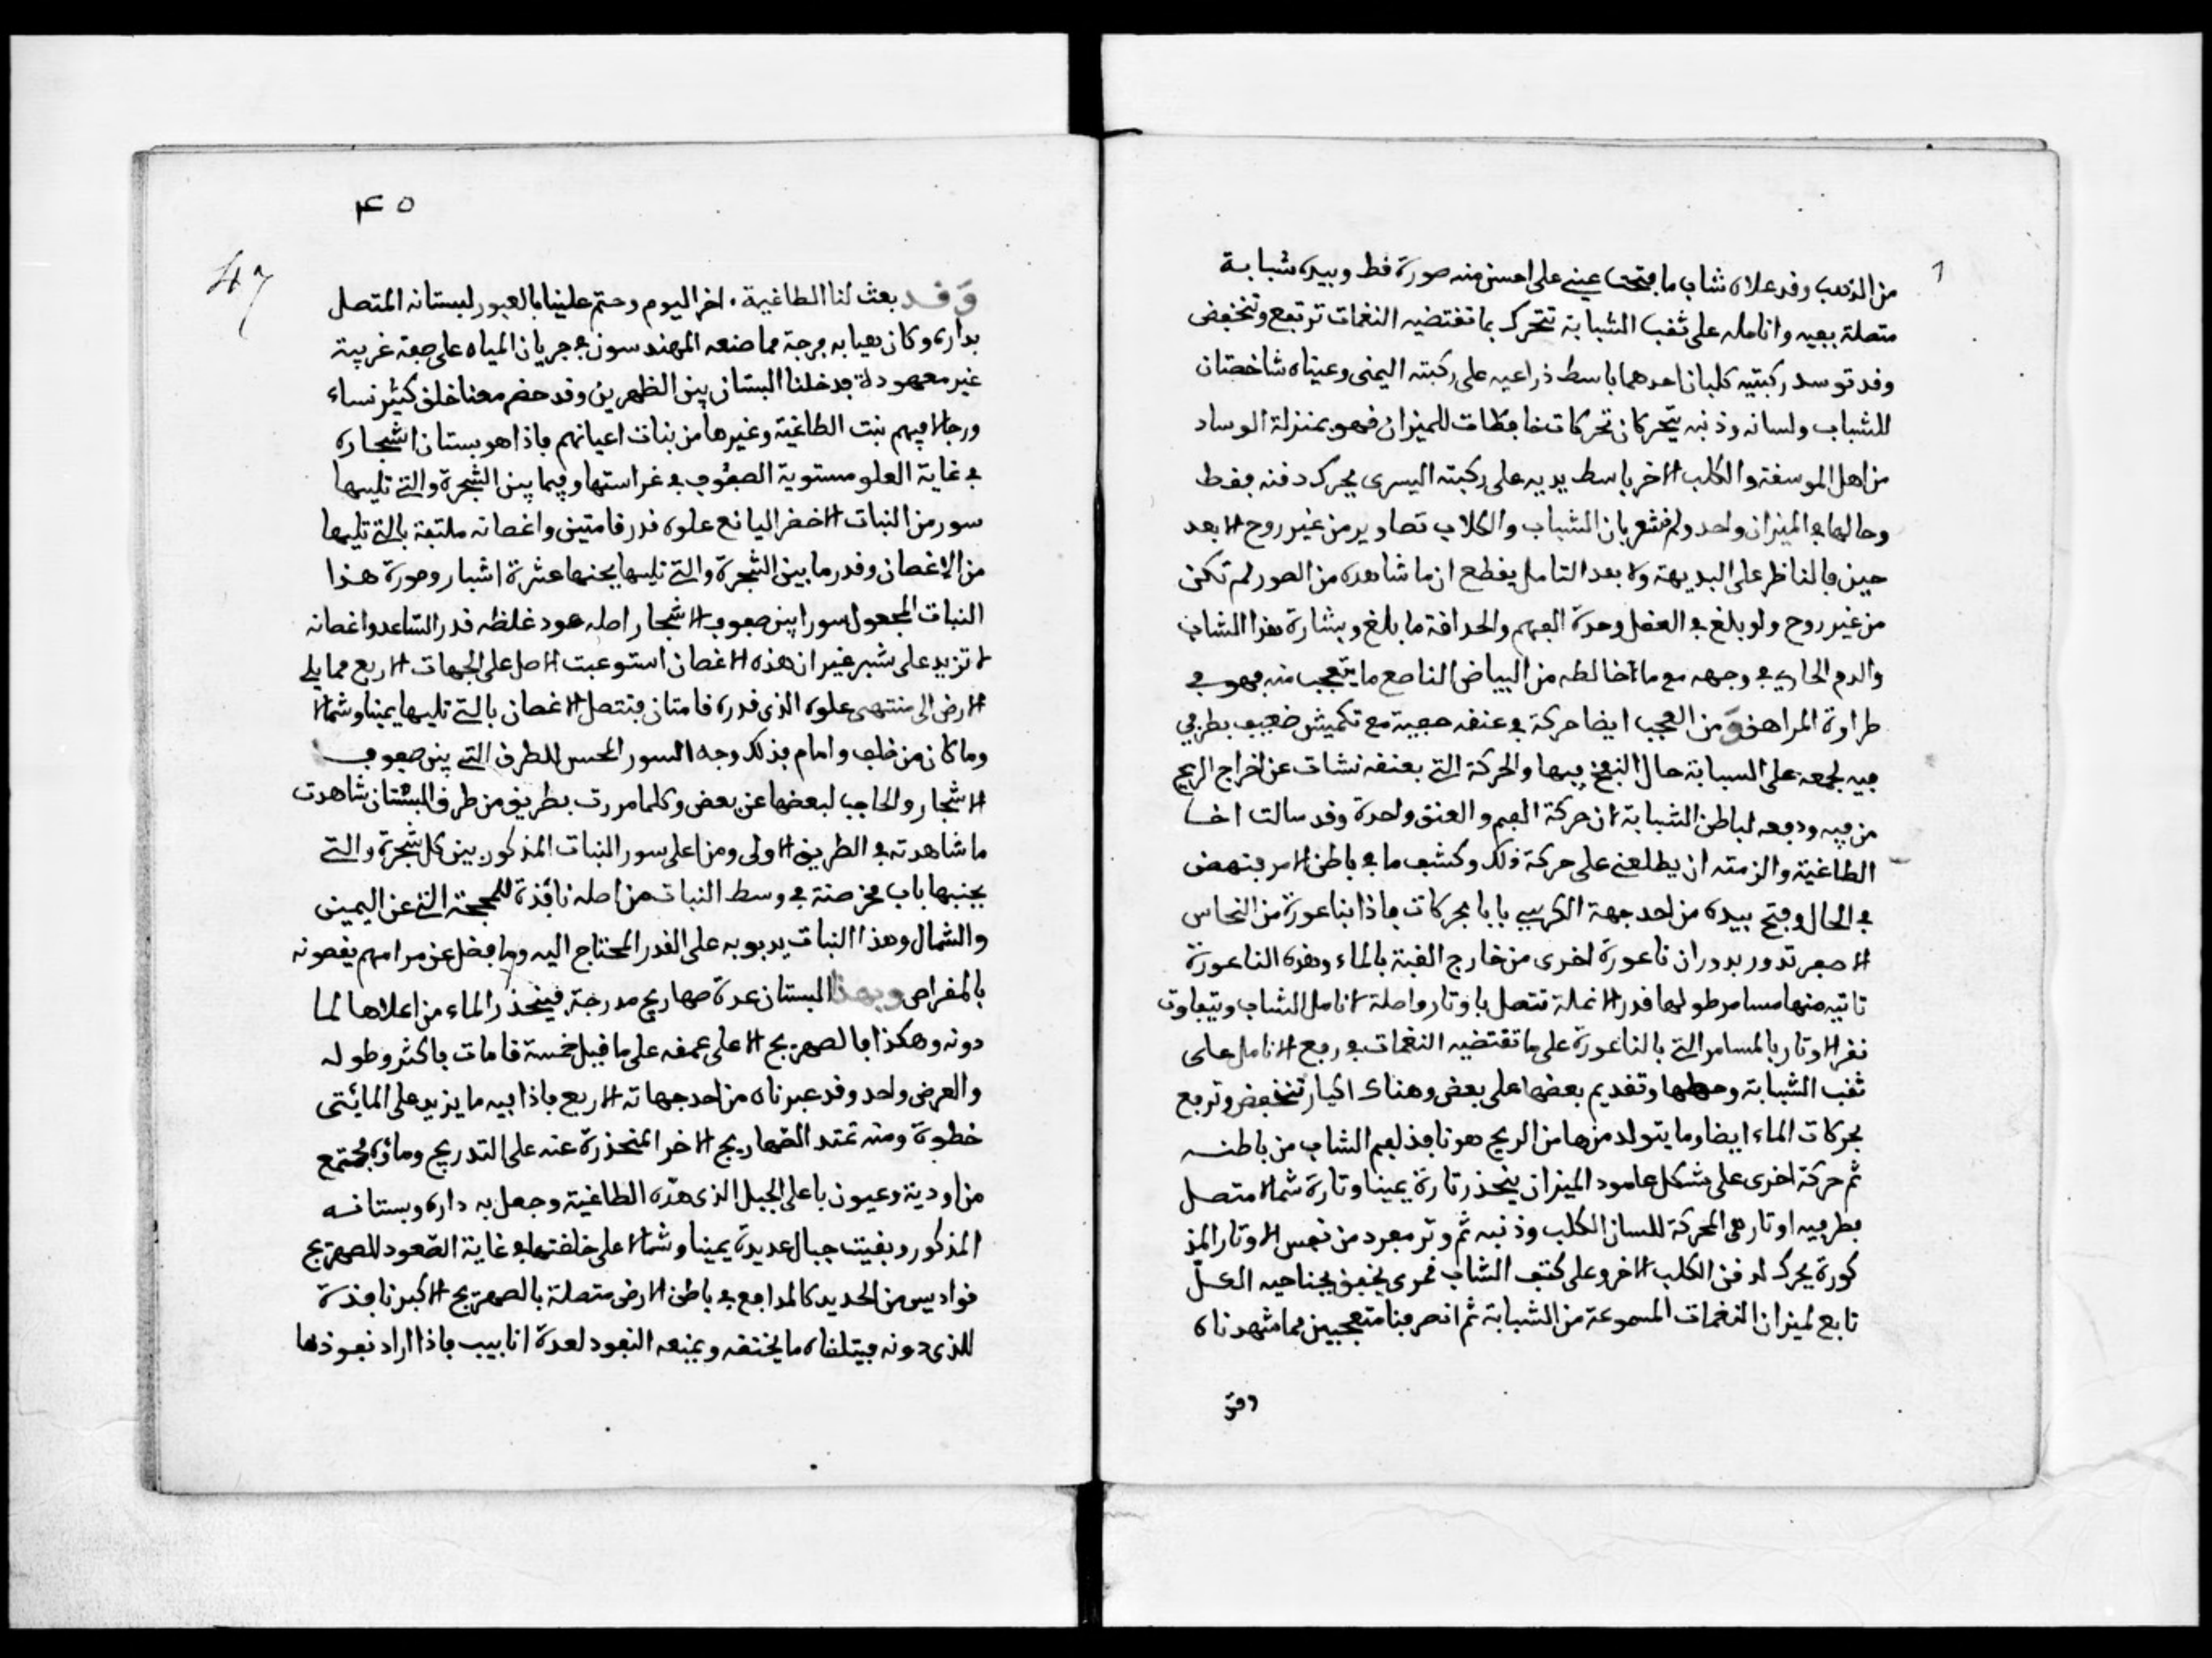 من الذهب وقد علاه شاب ما فتحت عيني على احسن منه صورة قط وبيده شبابة
متصلة بفيه وانامله على ثقب الشبابة تتحرك بما تقتضيه النغمات ترتفع وتنخفض
وقد توسد ركبتيه كلبان احدهما باسط ذراعيه على ركبته اليمنى وعيناه شاخصتان
للشباب ولسانه وذنبه يتحركان تحركات حافظات للميزان فهو بمنزلة الوساد
من اهل الموسقة والكلب الاخر باسط يديه على ركبته اليسرى يحرك دقنه فقط
وحالهما في الميزان واحد ولم نشعر بان الشباب والكلاب تصاوير من غير روح الا بعد
حين فالناظر على البديهة ولا بعد التامل يقطع ان ما شاهده من الصور لم تكن
من غير روح ولو بلغ في العقل وحدة الفهم والحداقة ما بلغ وبشارة هذا الشاب
والدم الجاري في وجهه مع ما اخالطه من البياض الناصع ما يتعجب منه فهو في
طراوة المراهق ومن العجب ايضا حركة في عنقه عجيبة مع تكميش ضعيف بطرفي
فيه لجمعه على السبابة حال النفخ فيها والحركة التي بعنقه نشات عن اخراج الريح
من فيه ودفعه لباطن الشبابة لان حركة الفم والعنق واحدة وقد سالت اخا
الطاغية والزمته ان يطلعني على حركة ذلك وكشف ما في باطن الامر فنهض
في الحال وفتح بيده من احد جهة الكرسي بابا بحركات فاذا بناعورة من النحاس
الاصفر تدور بدوران ناعورة اخرى من خارج القبة بالماء وهذه الناعورة
ناتيه منها مسامر طولها قدر الانملة تتصل باوتار واصلة لانامل الشاب ويتفاوت
نقر الاوتار بالمسامر التي بالناعورة على ما تقتضيه النغمات في رفع الانامل على
ثقب الشبابة وحطها وتقديم بعضها على بعض وهناك اكيار تنخفض وترفع
بحركات الماء ايضا وما يتولد منها من الريح هو نافذ لفم الشاب من باطنه
ثم حركة اخرى على شكل عامود الميزان ينحذر تارة يمينا وتارة شمالا متصل
بطرفيه اوتار هي المحركة للسان الكلب وذنبه ثم وتر مفرد من نفس الاوتار المذ
كورة يحرك لدقن الكلب الاخر وعلى كتف الشاب قمرى يخفق بجناحيه الكل
تابع لميزان النغمات المسموعة من الشبابة ثم انصرفنا متعجبين مما شهدناه
وقد
٤٥
47
وقد بعث لنا الطاغية اخر اليوم وحتم علينا بالعبور لبستانه المتصل
بداره وكان بعيابه فرجة مما صنعه المهندسون في جريان المياه على صفة غريبة
غير معهودة فدخلنا البستان بين الظهرين وقد حضر معنا خلق كثير نساء
ورجالا فيهم بنت الطاغية وغيرها من بنات اعيانهم فاذا هو بستان اشجاره
في غاية العلو مستوية الصفوف في غراستها وفيما بين الشجرة والتي تليها
سور من النبات الاخضر اليانع علوه قدر قامتين واغصانه ملتفة بالتي تليها
من الاغصان وقدر ما بين الشجرة والتي تليها بجنبها عشرة اشبار وصورة هذا
النبات المجعول سورا بين صفوف الاشجار اصله عود غلظه قدر الساعد واغصانه
لا تزيد على شبر غير ان هذه الاغصان استوعبت الاصل على الجهات الاربع مما يلي
الارض الى منتهى علوه الذي قدره قامتان فتتصل الاغصان بالتي تليها يمينا وشمالا
وما كان من خلف وامام فذلك وجه السور المحسن للطرق التي بين صفوف
الاشجار والحاجب لبعضها عن بعض وكلما مررت بطريق من طرق البستان شاهدت
ما شاهدته في الطريق الاولى ومن اعلى سور النبات المذكور بين كل شجرة والتي
بجنبها باب مخرصنة في وسط النبات من اصله نافذة للمحجة التي عن اليمين
والشمال وهذا النبات يربو به على القدر المحتاج اليه وما فضل عن مرامهم يقصونه
بالمقراص وبهذا البستان عدة صهاريج مدرجة فينحذر الماء من اعلاها لما
دونه وهكذا فالصهريج الاعلى عمقه على ما قيل خمسة قامات فاكثر وطوله
والعرض واحد وقد عبرناه من احد جهاته الاربع فاذا فيه ما يزيد على المائتى
خطوة ومنه تمتد الصهاريج الاخر المنحذرة عنه على التدريج وماؤه مجتمع
من اودية وعيون باعلى الجبل الذي هذه الطاغية وجعل به داره وبستانه
المذكور وبقيت جبال عديدة يمينا وشمالا على خلقتها في غاية الصعود للصهريج
قواديس من الحديد كالمدافع في باطن الارض متصلة بالصهريج الاكبر نافذة
للذي دونه فيتلقاه ما يختقه ويمنعه النفود لعدة انابيب فاذا اراد نفوذها